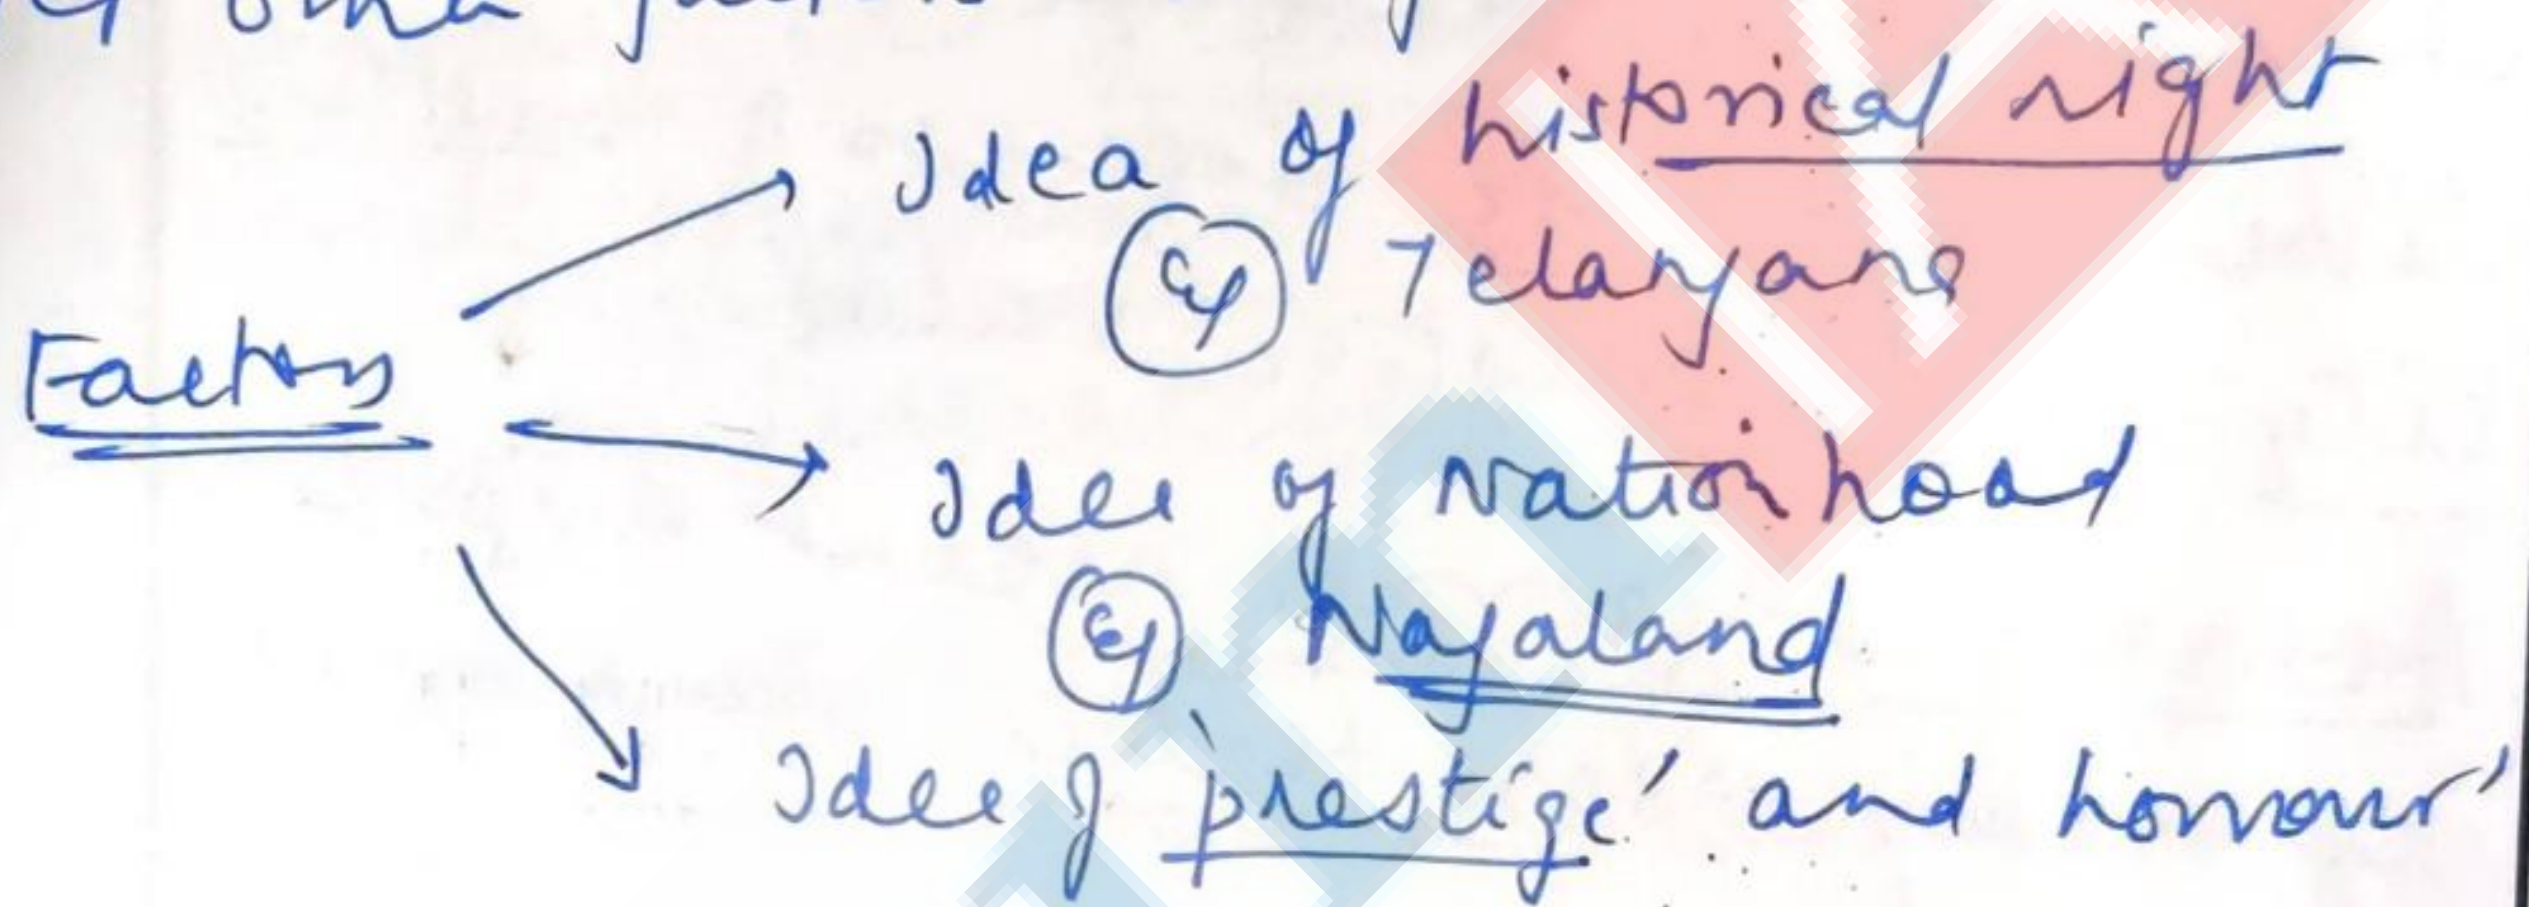 other factors
Idea of historical right
Eg Telangana
Factors
Idea of Nationhood
Eg Nagaland
Idea of 'prestige' and honour'